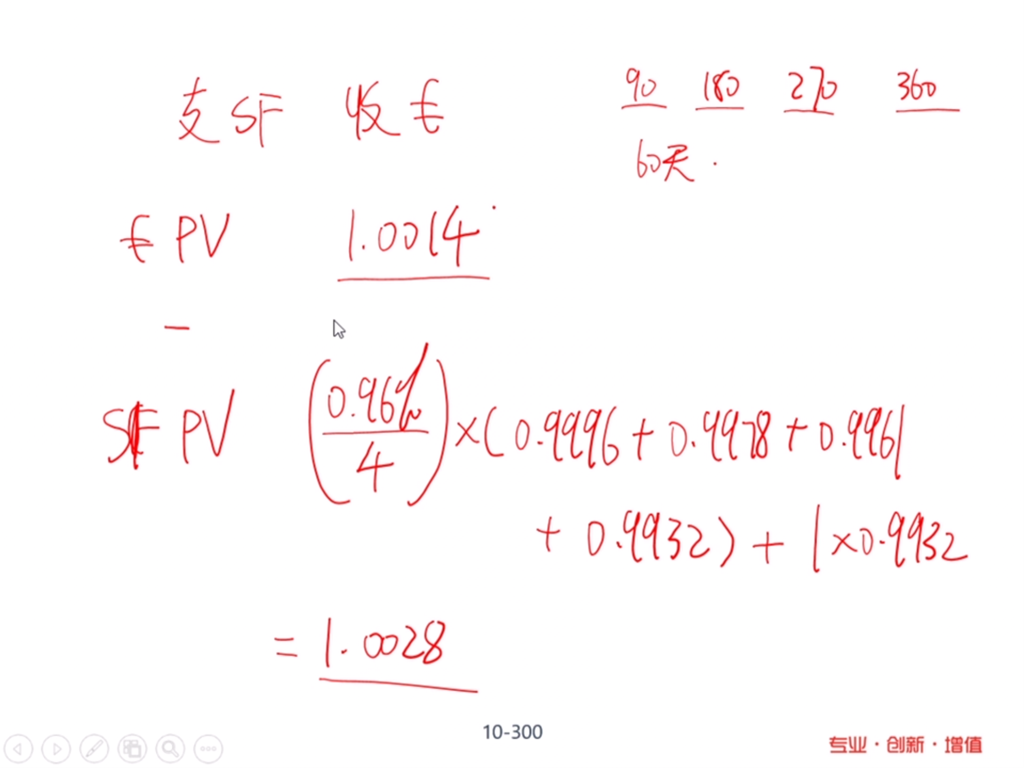 支 SF 收 €
90 180 270 360
60天.
€ PV 1.0014
−
SF PV (0.96%/4) × (0.9996 + 0.9978 + 0.9961
+ 0.9932) + 1×0.9932
= 1.0028
10-300
专业·创新·增值